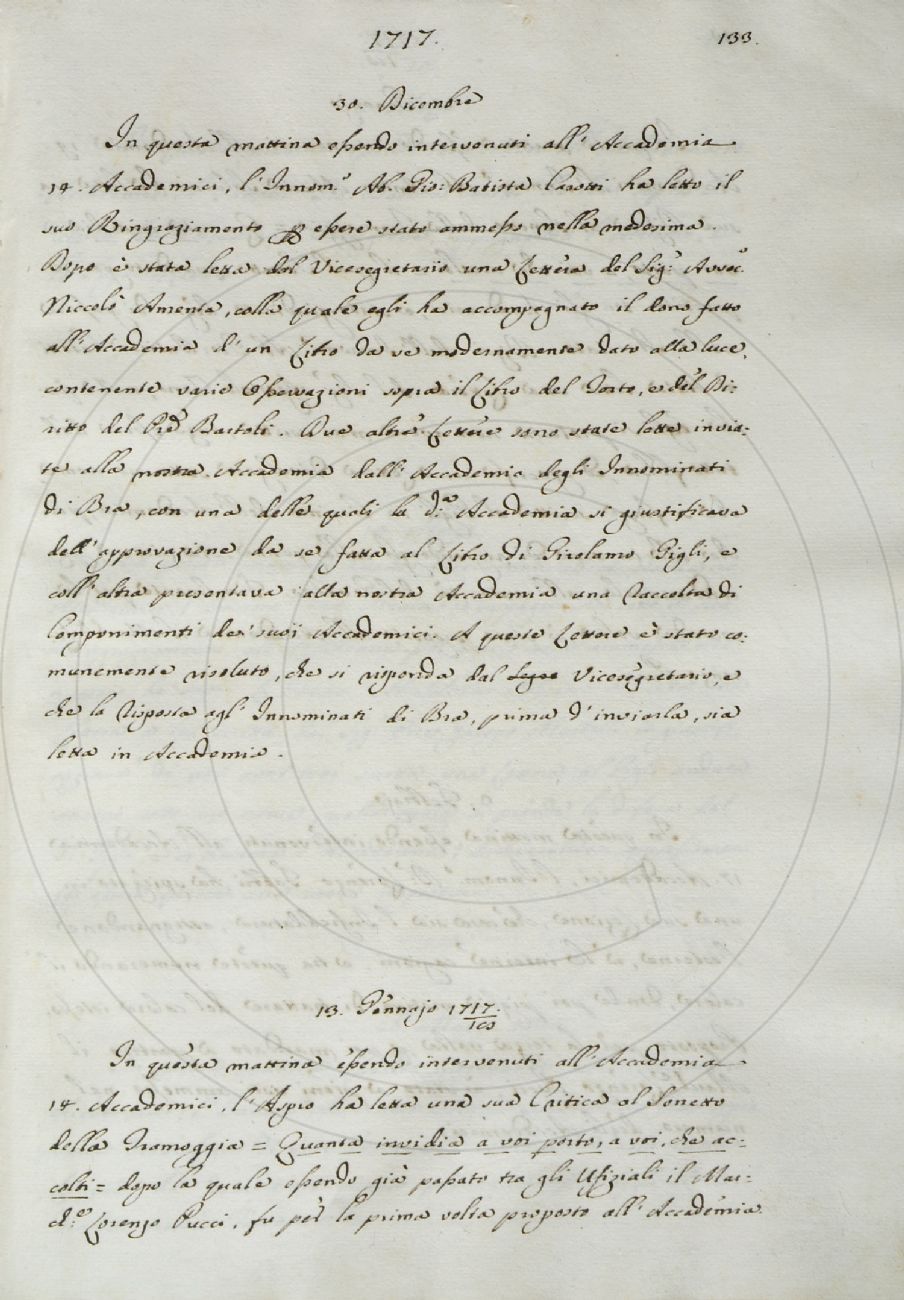 1717.
133.
30. Dicembre
In questa mattina essendo intervenuti all'Accademia
14. Accademici, l'Innom.º Ab. Gio: Batista Casotti ha letto il
suo Ringraziamento per essere stato ammesso nella medesima.
Dopo è stata letta dal Vicesegretario una Lettera del Sig.r Avvoc.º
Niccolò Amenta, colla quale egli ha accompagnato il dono fatto
all'Accademia d'un Libro da se modernamente dato alla luce,
contenente varie Osservazioni sopra il Libro del Torto, e del Di-
ritto del P.re Bartoli. Due altre Lettere sono state lette invia-
te alla nostra Accademia dall'Accademia degli Innominati
di Bra, con una delle quali la d.ª Accademia si giustificava
dell'approvazione da se fatta al Libro di Girolamo Gigli, e
coll'altra presentava alla nostra Accademia una Raccolta di
Componimenti de' suoi Accademici. A queste Lettere è stato co-
munemente risoluto, che si risponda dal Vicesegretario, e
che la risposta agl'Innominati di Bra, prima d'inviarla, sia
letta in Accademia.
13. Gennajo 1717.
In questa mattina essendo intervenuti all'Accademia
14. Accademici, l'Aspro ha letta una sua Critica al Sonetto
della Tramoggia = Quanta invidia a voi porto, a voi, che ac-
colti = dopo la quale essendo già passato tra gli Ufiziali il Mar-
ch.º Lorenzo Pucci, fu per la prima volta proposto all'Accademia.